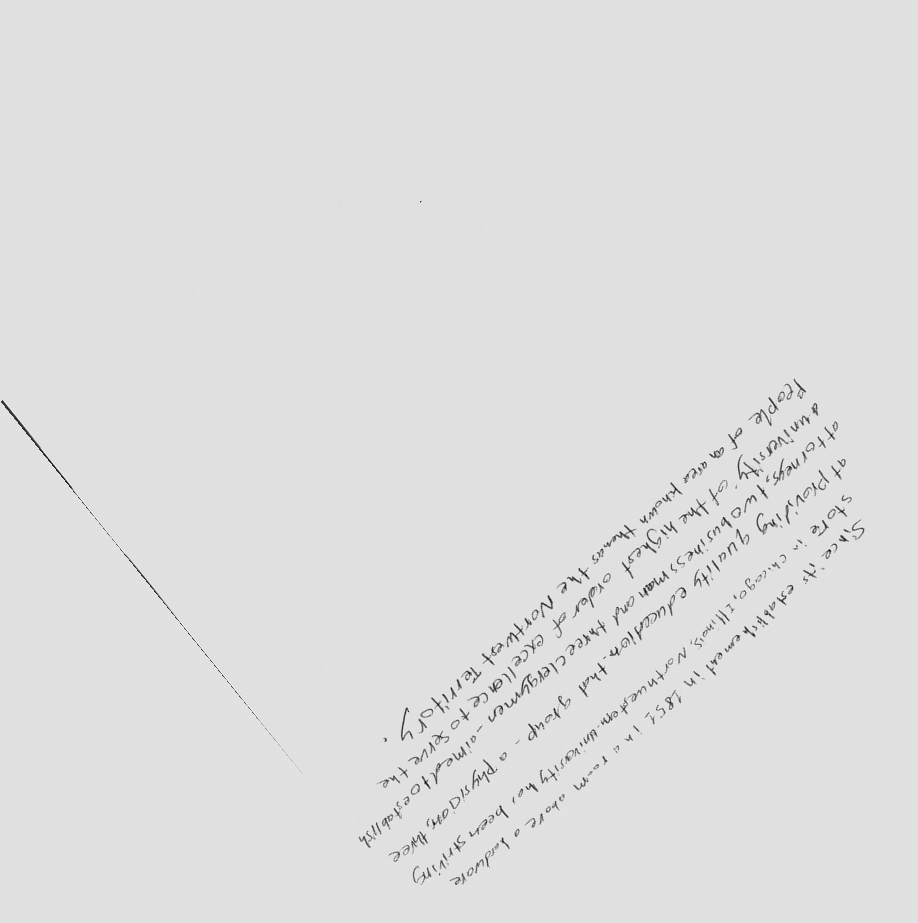 Since its establishement in 1851 in a room above a hardware
store in chicago, Illinois, Northwestern university has been striving
at providing quality education. that group - a Physician, three
attorneys, two businessman and three clergymen - aimed to establish
a university of the highest order of excellence to serve the
People of an area known then as the Northwest Territory.